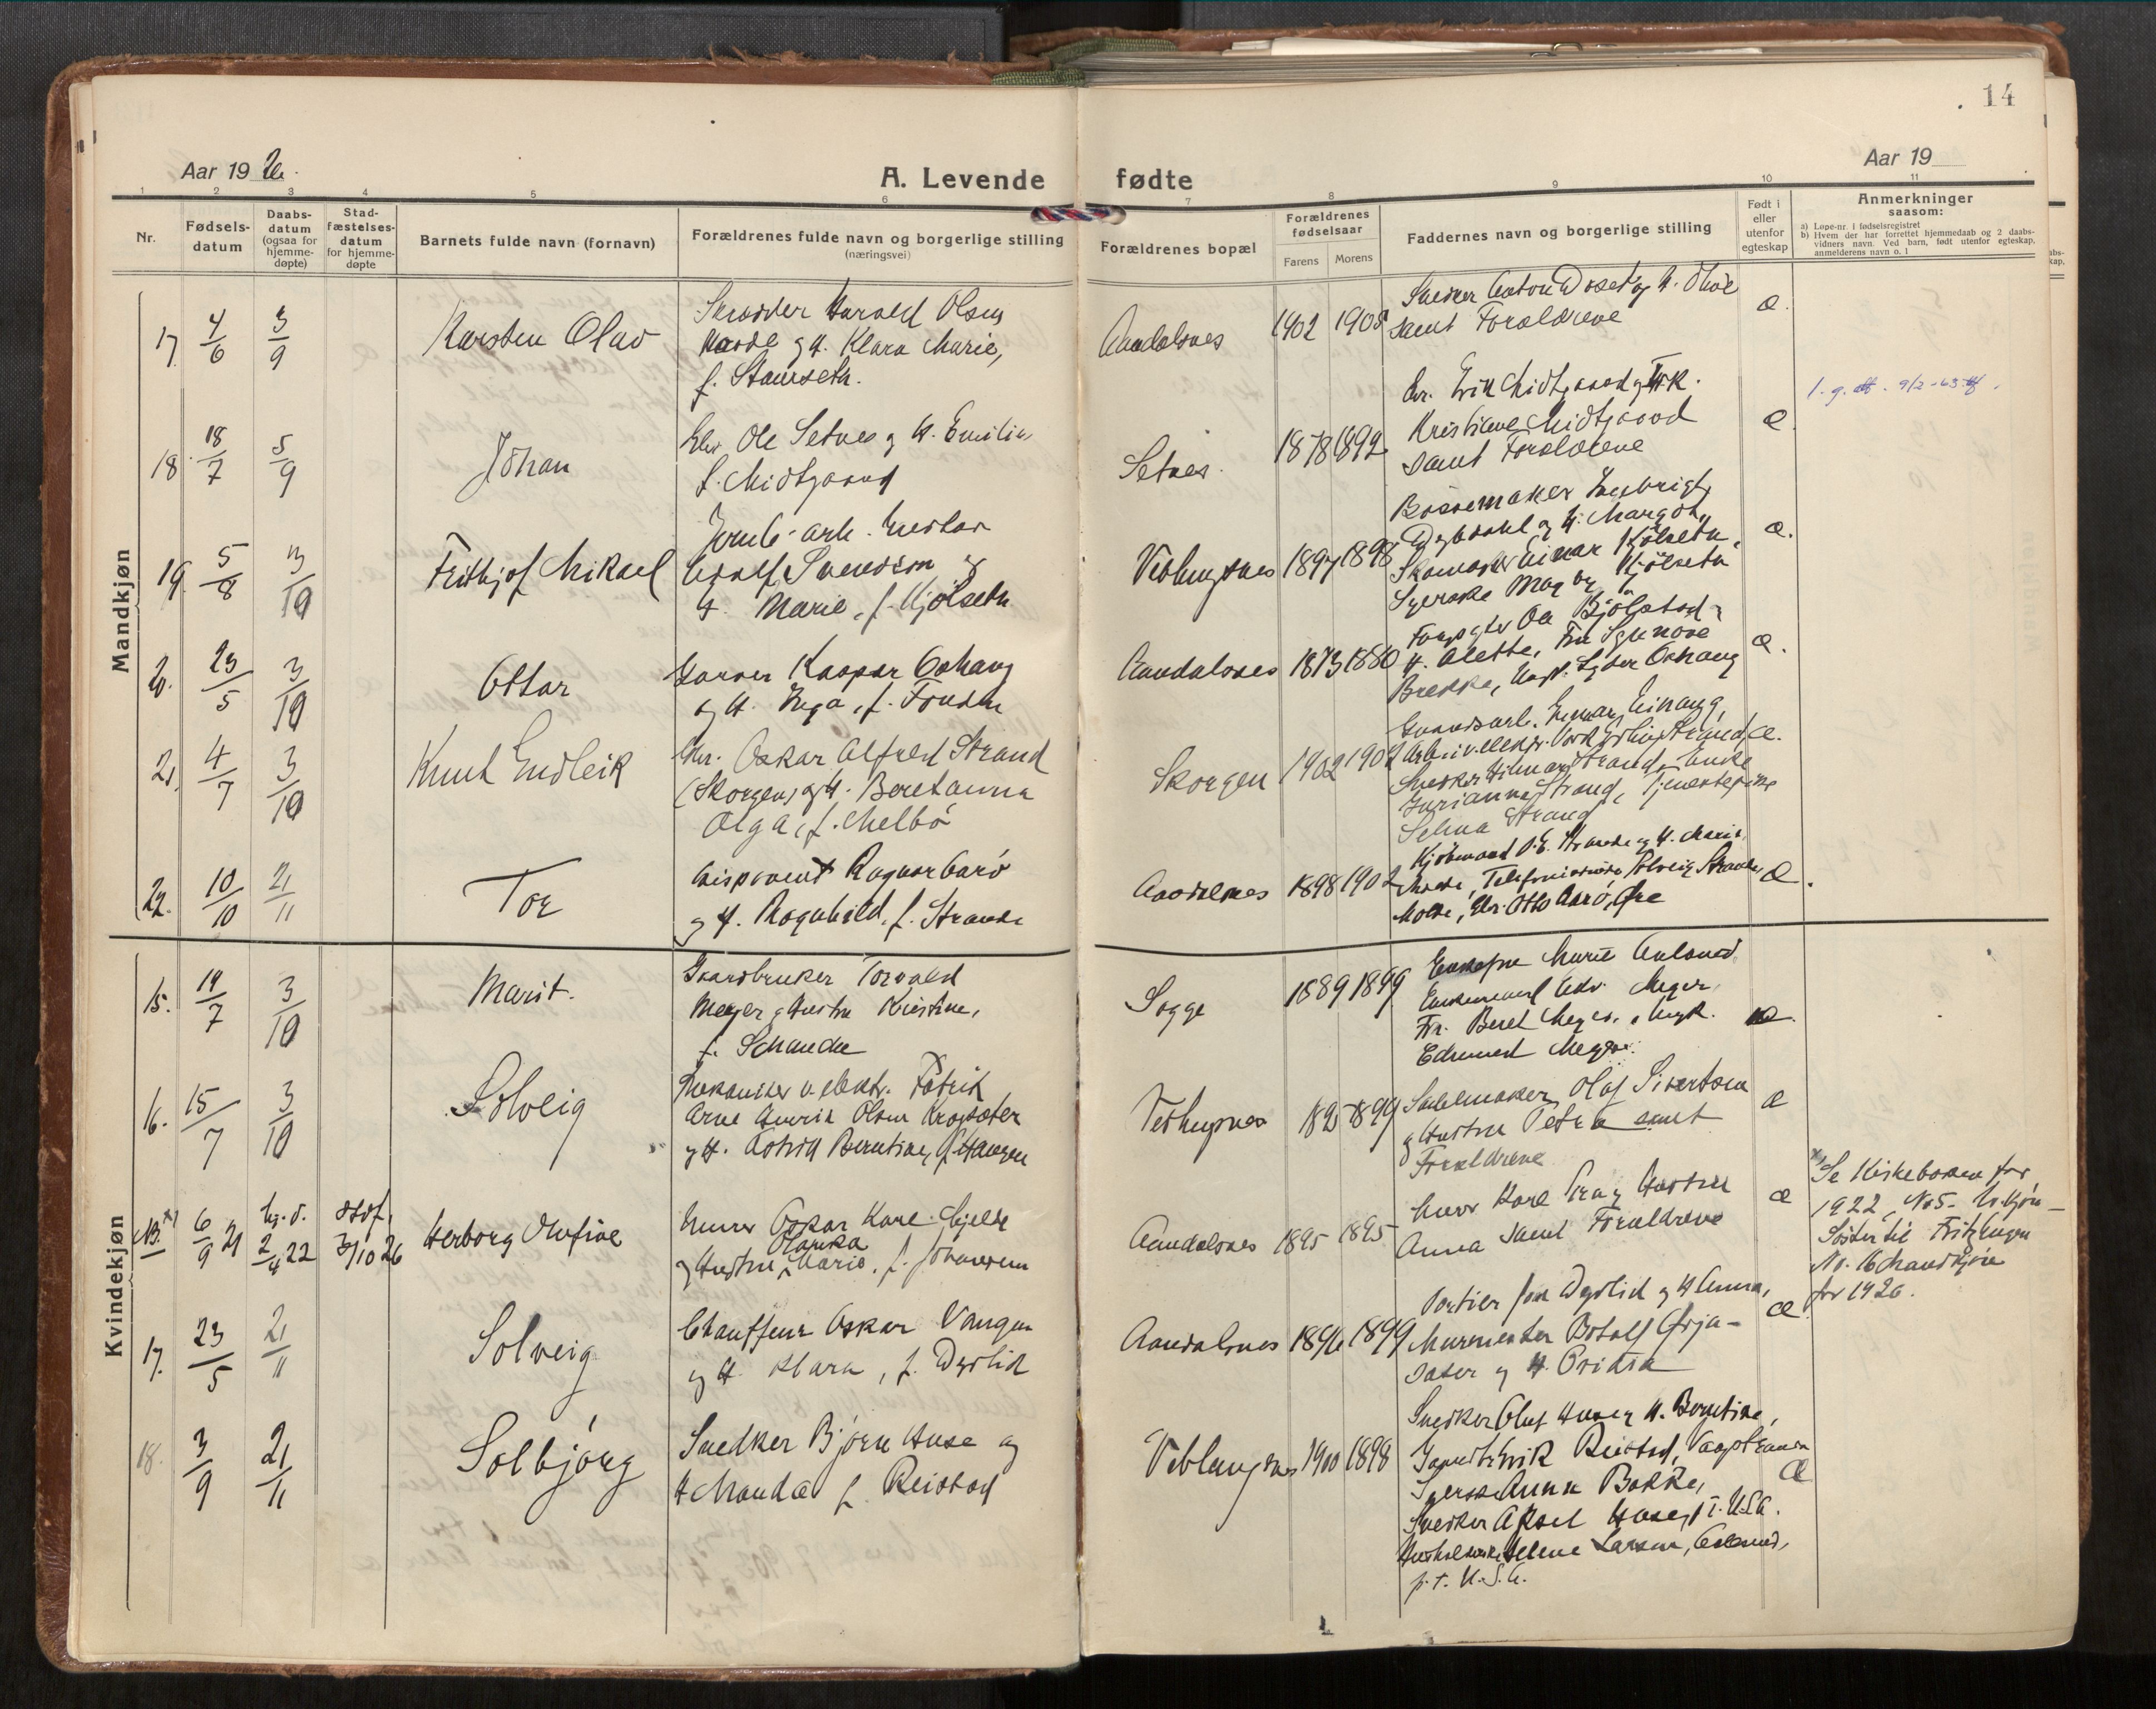 14
Aar 1926.
A. Levende fødte
Aar 19
1 2 3 4 5 6 7 8 9 10 11
Nr.
Fødsels-
datum
Daabs-
datum
(ogsaa for
hjemme-
døpte)
Stad-
fæstelses-
datum
for hjemme-
døpte
Barnets fulde navn (fornavn)
Forældrenes fulde navn og borgerlige stilling
(næringsvei)
Forældrenes bopæl
Forældrenes
fødselsaar
Farens Morens
Faddernes navn og borgerlige stilling
Født i
eller
utenfor
egteskap
Anmerkninger
saasom:
a) Løpe-nr. i fødselsregistret
b) Hvem der har forrettet hjemmedaab og 2 daabs-
vidners navn. Ved barn, født utenfor egteskap,
anmelderens navn o. l
Mandkjøn
17 4/6 5/9 Karsten Olav
Skrædder Harald Olsen
og H. Klara Marie,
f. Stamseth.
Aandalsnes 1902 1905
Snekker Anton
samt Forældrene
æ.
9/2-63
18. 18/7 5/9 Johan
Ole Setnes og H. Emilie
f. Midtgaard
Setnes. 1878 1892
Erik Midtgaard og Frk.
Kristiane Midtgaard
samt Forældrene
æ
19. 5/8 3/10 Fritjof Mikael
Jernb. arb. Gustav
Adolf Svendsen og
H. Marie, f. Kjölseth
Veblungsnes 1897 1898
Bössemaker Ingebrigt
Dybdahl og H. Margot,
Skomaker Einar Kjölseth,
Syerske Magny Kjölseth
æ.
20. 23/5 3/10 Ottar
Garver Kaspar Oshaug
og H. Inga, f. Frisen
Aandalsnes 1873 1880
Forpagter Ola Bjölstad
H. Alette, Fru Synnøve
Brekke, Ungk. Oshaug
æ.
21. 4/7 3/10 Knut Eindleik
Oskar Alfred Strand
(Skorgen) og H. Beretanna
Olga, f. Melbö
Skorgen 1902 1902
Gaardsarb. Einar Einang,
Snekker Hilmar Strand, Enke
Jurianna Strand, Tjenestepike
Selma Strand
æ.
22. 10/10 21/11 Tor
Disponent Ragnar Aarö
og H. Ragnhild, f. Strande
Aandalsnes 1898 1902
Kjöbmand O. E. Strande og H. Marie,
Molde, Telefonistinde Solveig Strande,
Molde, Otto Aarö, Øre
æ.
Kvindekjøn
15. 14/7 3/10 Marit.
Gaardbruker Torvald
Meyer og Hustru Kristine,
f. Schancke
Sogge 1889 1899
Enkefru Marie
Enkemand Meyer,
Fr. Beret Meyer, Ungk.
Edvard Meyer.
æ.
16. 15/7 3/10 Solveig
Mekaniker v. elektr. Fabrik
Arne Henrik Olsen
og H. Astrid Berntine, f. Haugen
Veblungsnes 1895 1899
Salmaker Olaf Sivertsen
og Hustru Petra samt
Forældrene
æ
NB. x) 6/9 21 hj. d. 2/4 22 stdf. 3/10 26 Herborg Olufine
Murer Oskar Karl Gjelde
Olianka
og Hustru Marie, f. Johansen
Aandalsnes 1895 1895
Murer Karl og Hustru
Anna samt Forældrene
æ
x) Se Kirkeboken for
1922, No 5. Kv.kjön -
Söster til Fritz Haugen
No. 16 Mandkjön
for 1926.
17. 23/5 21/11 Solveig
Chauffeur Oskar Vangen
og H. Klara, f. Dyrlid
Aandalsnes 1896 1899
Portier Jon Dyrlid og H Anna,
Murmester Botolf Örja-
sæter og H. Oridia
æ.
18. 3/9 21/11 Solbjörg
Snedker Björn Huse og
H Manda f. Reistad
Veblungsnes 1900 1898
Snedker Oluf Huse og H. Berntine,
Erik Reistad, Vaagstranda
Syerske Anna Bakke,
Snedker Aksel Huse, p.t. U.S.A.
Husholderske Helene Larsen, Aalesund,
p. t. U. S. A.
æ